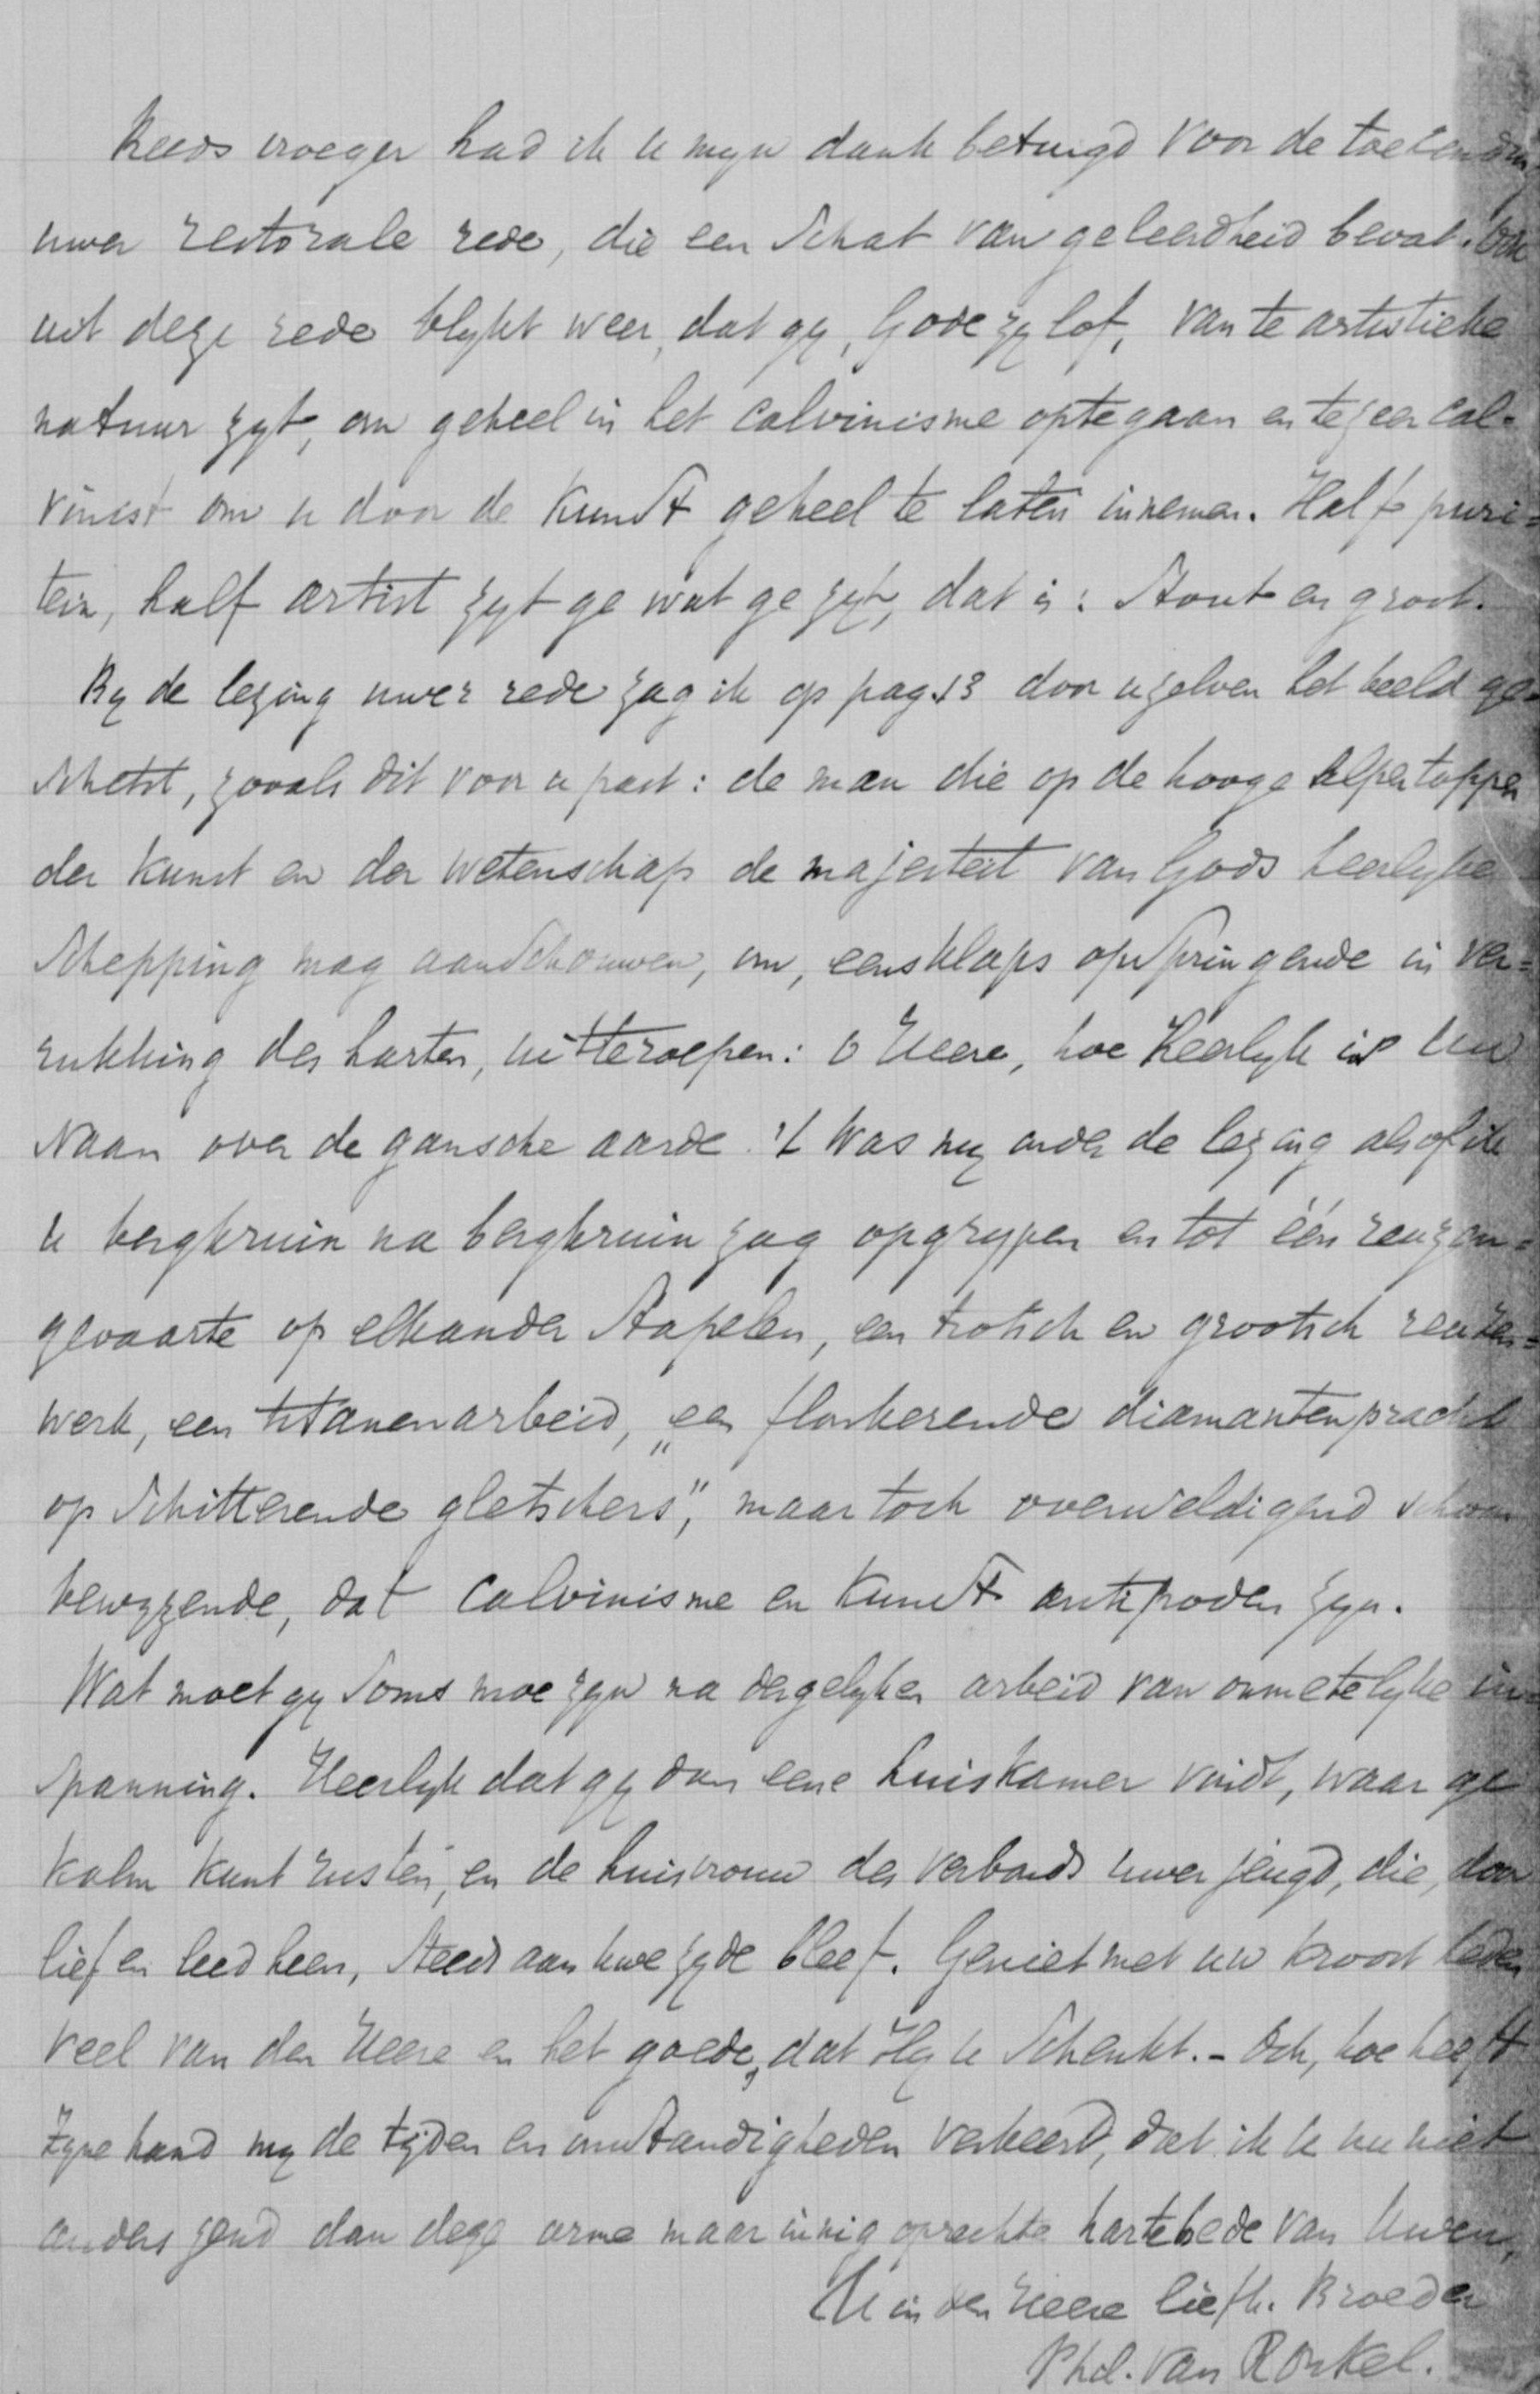 Reeds vroeger had ik u mijn dank betuigd voor de toezending
uwer rectorale rede, die een schat van geleerdheid bevat. Ook
uit deze rede blijkt weer, dat gij, Gode zij lof, van te artistieke
natuur zijt, om geheel in het Calvinisme optegaan en tezeer Cal-
vinist om u door de kunst geheel te laten innemen. Half puri=
tein, half artist zijt ge wat ge zijt, dat is: stout en groot.
Bij de lezing uwer rede zag ik op pag. 13 door uzelven het beeld ge=
schetst, zooals dit voor u past: de man die op de hooge Alpentoppen
der kunst en der wetenschap de majesteit van Gods heerlijke
schepping mag aanschouwen, om, eensklaps opspringende in ver=
rukking des harten, uitteroepen: O Heere, hoe heerlijk is Uw
Naam over de gansche aarde. 't Was mij onder de lezing alsof ik
U bergkruin na bergkruin zag opgrijpen en tot één reuzen=
gevaarte op elkander stapelen, een trotsch en grootsch reuzen=
werk, een titanenarbeid, „een flonkerende diamantenpracht
op schitterende gletschers", maar toch overweldigend schoon
bewijzende, dat Calvinisme en Kunst antipoden zijn.
Wat moet gij soms moe zijn na dergelijken arbeid van onmetelijke in
spanning. Heerlijk dat gij dan eene huiskamer vindt, waar ge
kalm kunt rusten, en de huisvrouw des verbonds uwer jeugd, die, door
lief en leed heen, steeds aan uwe zijde bleef. Geniet met uw kroost heden
veel van den Heere en het goede, dat Hij U schenkt. – Och, hoe heeft
Zijne hand mij de tijden en omstandigheden verkeerd, dat ik U nu niet
anders zend dan deze arme maar innig oprechte hartebede van Uwen,
U in den Heere liefh. Broeder
Phil. van Ronkel.